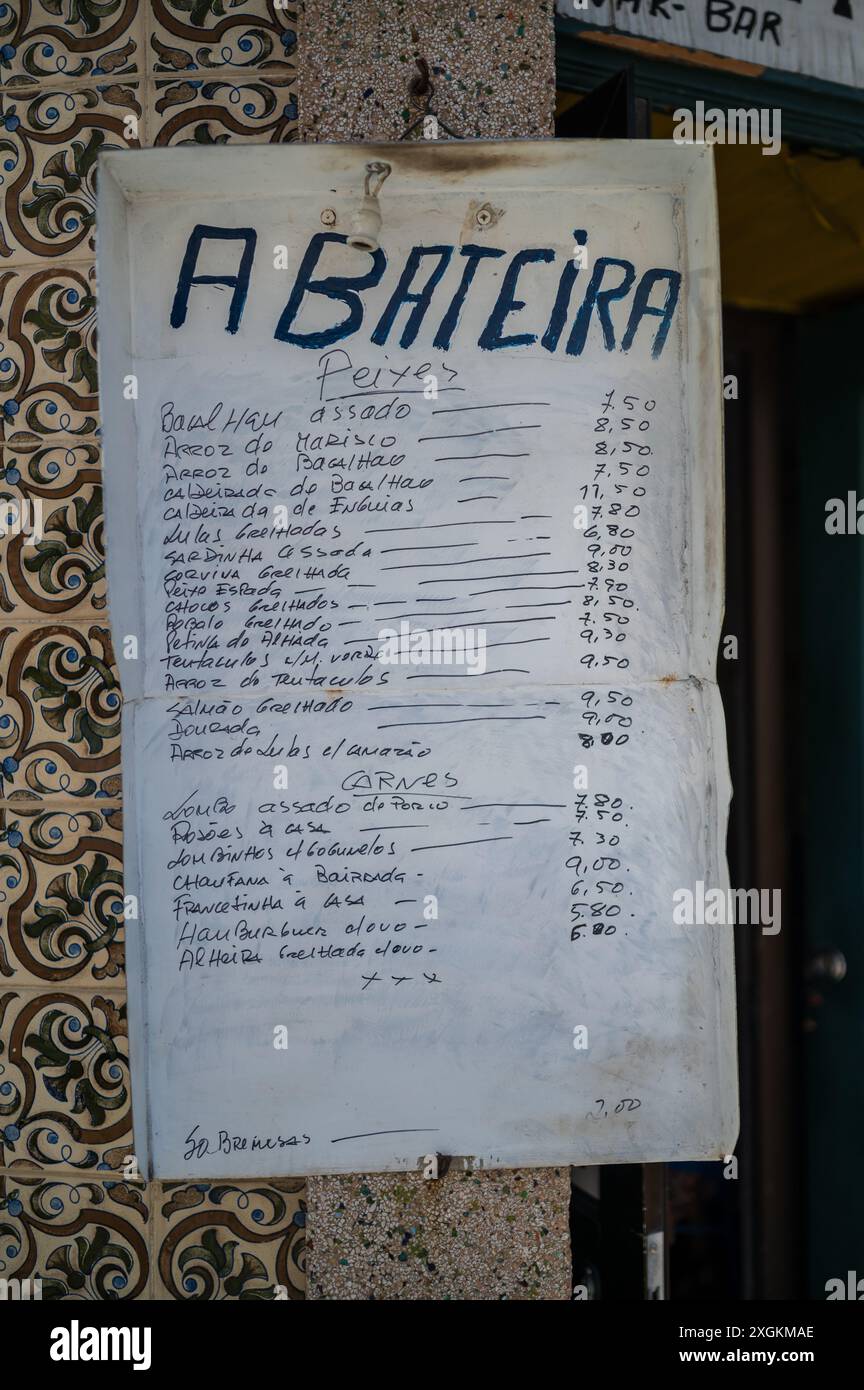 BAR - BAR
A BATEiRA
Peixes
BacalHau assado 7.50
ARROZ de MARISCO 8,50
ARROZ de BacalHao 8,50.
CALDEIRADA de BacalHao 7,50
CALDEIRADA de ENGUIAS 11,50
LULAS GRELHADAS 7.80
SARDINHA assada 6,80
CORVINA GRELHADA 9,00
PEIXE ESPADA 8,30
CHOCOS GRELHADOS 7.90
ROBALO GRELHADO 8,50.
PETINGA de ALHADA 7.50
TENTACULOS c/M. VERDE 9,30
ARROZ de TENTACULOS 9,50
SALMÃO GRELHADO 9,50
DOURADA 9,00
ARROZ de LULAS c/ CAMARÃO 8,00
CARNES
LOMBO assado de PORCO 7.80.
ROJÕES à CASA 7.50.
LOMBINHOS c/COGUMELOS 7.30
CHANFANA à BAIRRADA - 9,00.
FRANCESINHA à CASA 6,50.
HAMBURGUER c/ovo - 5.80.
ALHEIRA GRELHADA c/ovo - 6.00.
x x x
SOBREMESAS 2,00
alamy
Image ID: 2XGKMAE
www.alamy.com